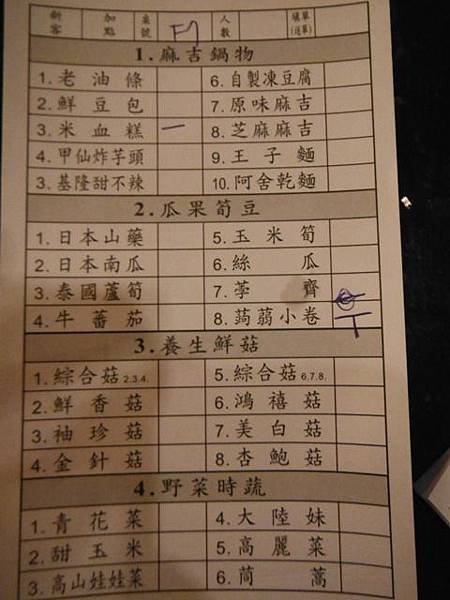 新客 加點 桌號 F7 人數 填單(送單)
1.麻吉鍋物
1.老油條 6.自製凍豆腐
2.鮮豆包 7.原味麻吉
3.米血糕 一 8.芝麻麻吉
4.甲仙炸芋頭 9.王子麵
3.基隆甜不辣 10.阿舍乾麵
2.瓜果筍豆
1.日本山藥 5.玉米筍
2.日本南瓜 6.絲瓜
3.泰國蘆筍 7.荸薺
4.牛蕃茄 8.蒟蒻小卷 丅
3.養生鮮菇
1.綜合菇2.3.4. 5.綜合菇6.7.8.
2.鮮香菇 6.鴻禧菇
3.袖珍菇 7.美白菇
4.金針菇 8.杏鮑菇
4.野菜時蔬
1.青花菜 4.大陸妹
2.甜玉米 5.高麗菜
3.高山娃娃菜 6.茼蒿